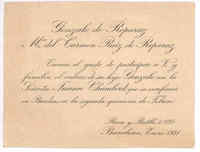 Gonzalo de Reparaz
y Mª del Carmen Ruiz de Reparaz
Tienen el gusto de participar a V. y
familia, el enlace de su hijo Gonzalo con la
Señorita Aurore Chambord que se verificará
en Barcelona en la segunda quincena de Febrero.
Barcelona, Enero 1931